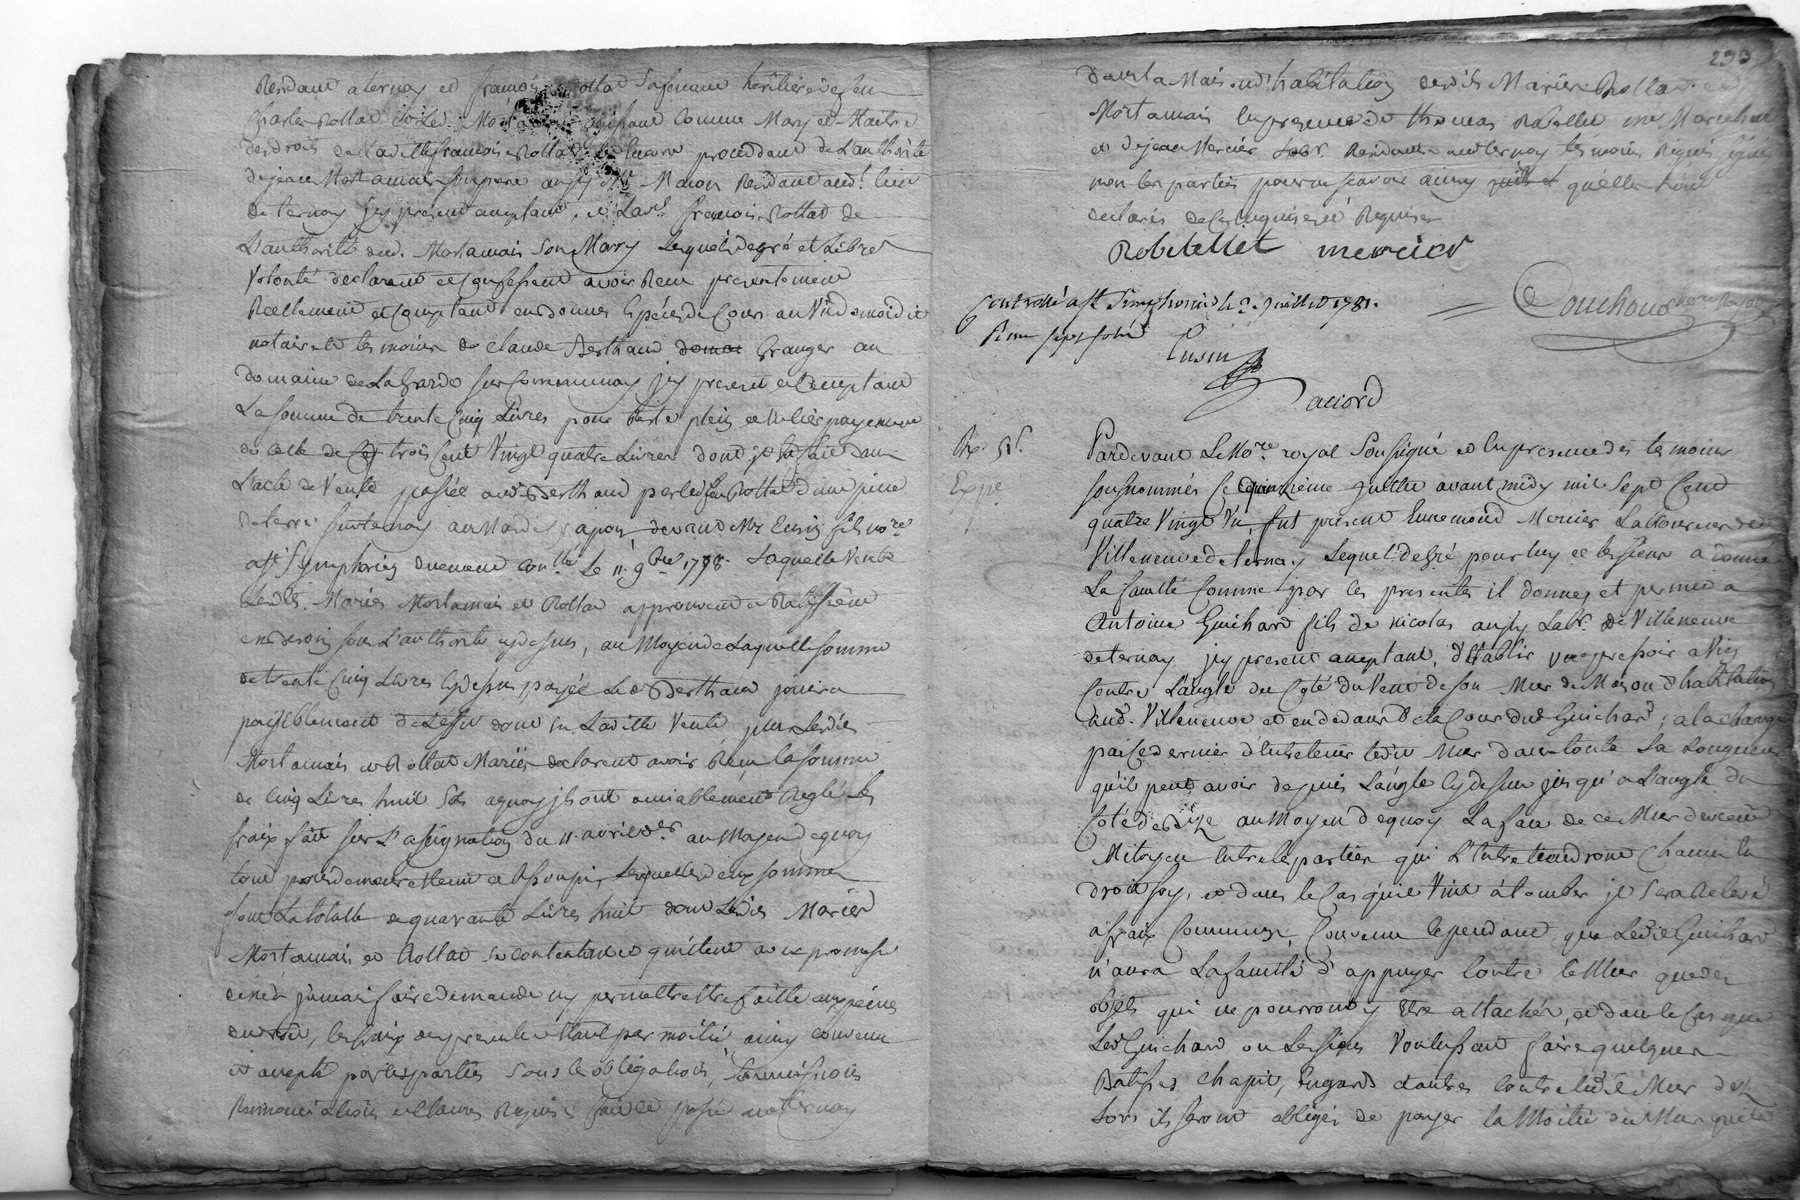 Residant a ternay et françoise Rollat sa femme heritiere de feu
Charles Rollat Led. Mortamais agissant Comme Mary et Maitre
des droits de Laditte françoise Rollat procedant de L'authorité
de jean Mortamais son pere aussy Me Maçon Residant aud. lieu
de ternay jcy present acceptant, et Lad. françoise Rollat de
L'authorité dud. Mortamais son Mary Lesquels de gré et Libre
Volonté declarent et Confessent avoir Reçu presentement
Reellement et Comptant en bonnes Especes de Cours au Vû de moidit
notaire et temoins de claude Berthaud Granger au
domaine de La Garde sur Communay jcy present et acceptant
La somme de trente Cinq Livres pour Reste plein et entier payement
de celle de trois Cent Vingt quatre Livres dont dans
L'acte de Vente passée aud. Berthaud par led. feu Rollat d'une piece
de terre sur ternay au Mas devant Me Eusin fils nore
a St Symphorien duement conllé Le 11. 9bre 1778. Laquelle Vente
Lesds. Mariés Mortamais et Rollat approuvent et Ratiffient
en de soin sous L'authorité cy dessus, au Moyen de Laquelle somme
de trente Cinq Livres cy dessus payée Led. Berthaud jouira
paisiblement de L'effet dont en Laditte Vente plus Lesdts
Mortamais et Rollat Mariés declarent avoir Reçu la somme
de Cinq Livres huit Sols a quoy ils ont amiablement Reglé Les
fraix fait sur L'assignation du 11. avril der au Moyen de quoy
tout procès demeure éteint et assoupi, Lesquelles deux sommes
font La totalle de quarante Livres huit dont Lesdits Mariés
Mortamais et Rollat se contentent et quittent avec promesse
de n'en jamais faire demande ny permettre être faitte aux peines
de droit, les fraix des presentes étant par moitié ainsy convenu
et accepté par les parties sous les obligations, soumissions
Renonciations et clauses Requises fait et passé aud. ternay
293
dans la Maison d'habitation desdits Mariés Rollat et
Mortamais En presence de thomas Robetellet Me Marechal
et de jean Mercier Labr. Residants aud. ternay temoins Requis signés
non les parties pour ne sçavoir ainsy qu'elles l'ont
declaré de ce enquises et Requises
Robitellet mercier
Couchoud nore Royal
Controllé a St Simphorien le 2. Juillet 1781.
Reçu sept sols
Eusin
accord
Rx. 5s.
Expe
Pardevant Le Nore. royal Soussigné et En presence des temoins
sousnommés Ce quinzième Juillet avant midy mil Sept Cent
quatre Vingt Un, fut present Ennemond Mercier Laboureur de
Villeneuve de ternay Lequel de gré pour luy et les siens a donné
La faculté Comme par Ces presentes il donne et permet a
Antoine Guichard fils de nicolas aussy Labr. de Villeneuve
de ternay jcy present acceptant, d'Etablir un pressoir a Vis
Contre L'angle du Coté du Vent de son Mur de Maison d'habitation
aud. Villeneuve et en dedans de la Cour dud. Guichard, a la charge
par ce dernier d'Entretenir ledit Mur dans toute sa Longueur
qu'il peut avoir depuis L'angle cy dessus jusqu'a L'angle du
Coté de Bize au Moyen de quoy La face de ce Mur devient
Mitoyen Entre les parties qui L'Entretiendront Chacun En
droit soy, et dans le Cas qu'il Vint à tomber il sera Relevé
a fraix Communs, Convenu Cependant que Ledit Guichard
n'aura La faculté d'appuyer Contre le Mur que des
objets qui ne pourront y Etre attachés, et dans le Cas que
Led. Guichard ou Les siens Voulussent faire quelques
Batisses chapit, Engards et autres Contre ledit Mur dez
Lors ils seront obligés de payer la Moitié du Mur